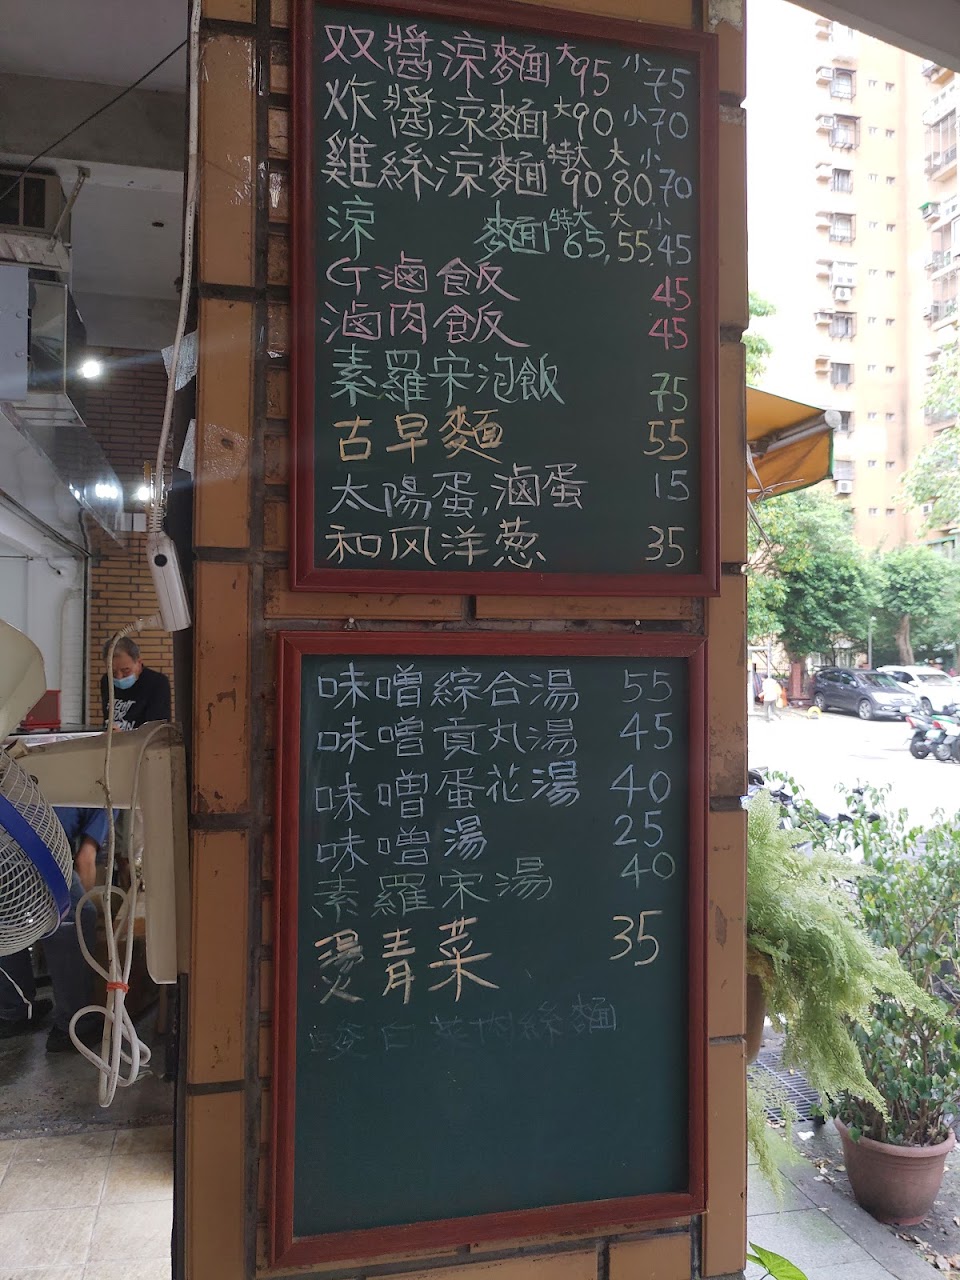 双醬涼麵 大95 小75
炸醬涼麵 大90 小70
雞絲涼麵 特大90. 大80. 小70
涼 麵 特大65, 大55. 小45
G滷飯 45
滷肉飯 45
素羅宋泡飯 75
古早麵 55
太陽蛋,滷蛋 15
和风洋葱 35
味噌綜合湯 55
味噌貢丸湯 45
味噌蛋花湯 40
味噌湯 25
素羅宋湯 40
燙青菜 35
白菜肉絲麵